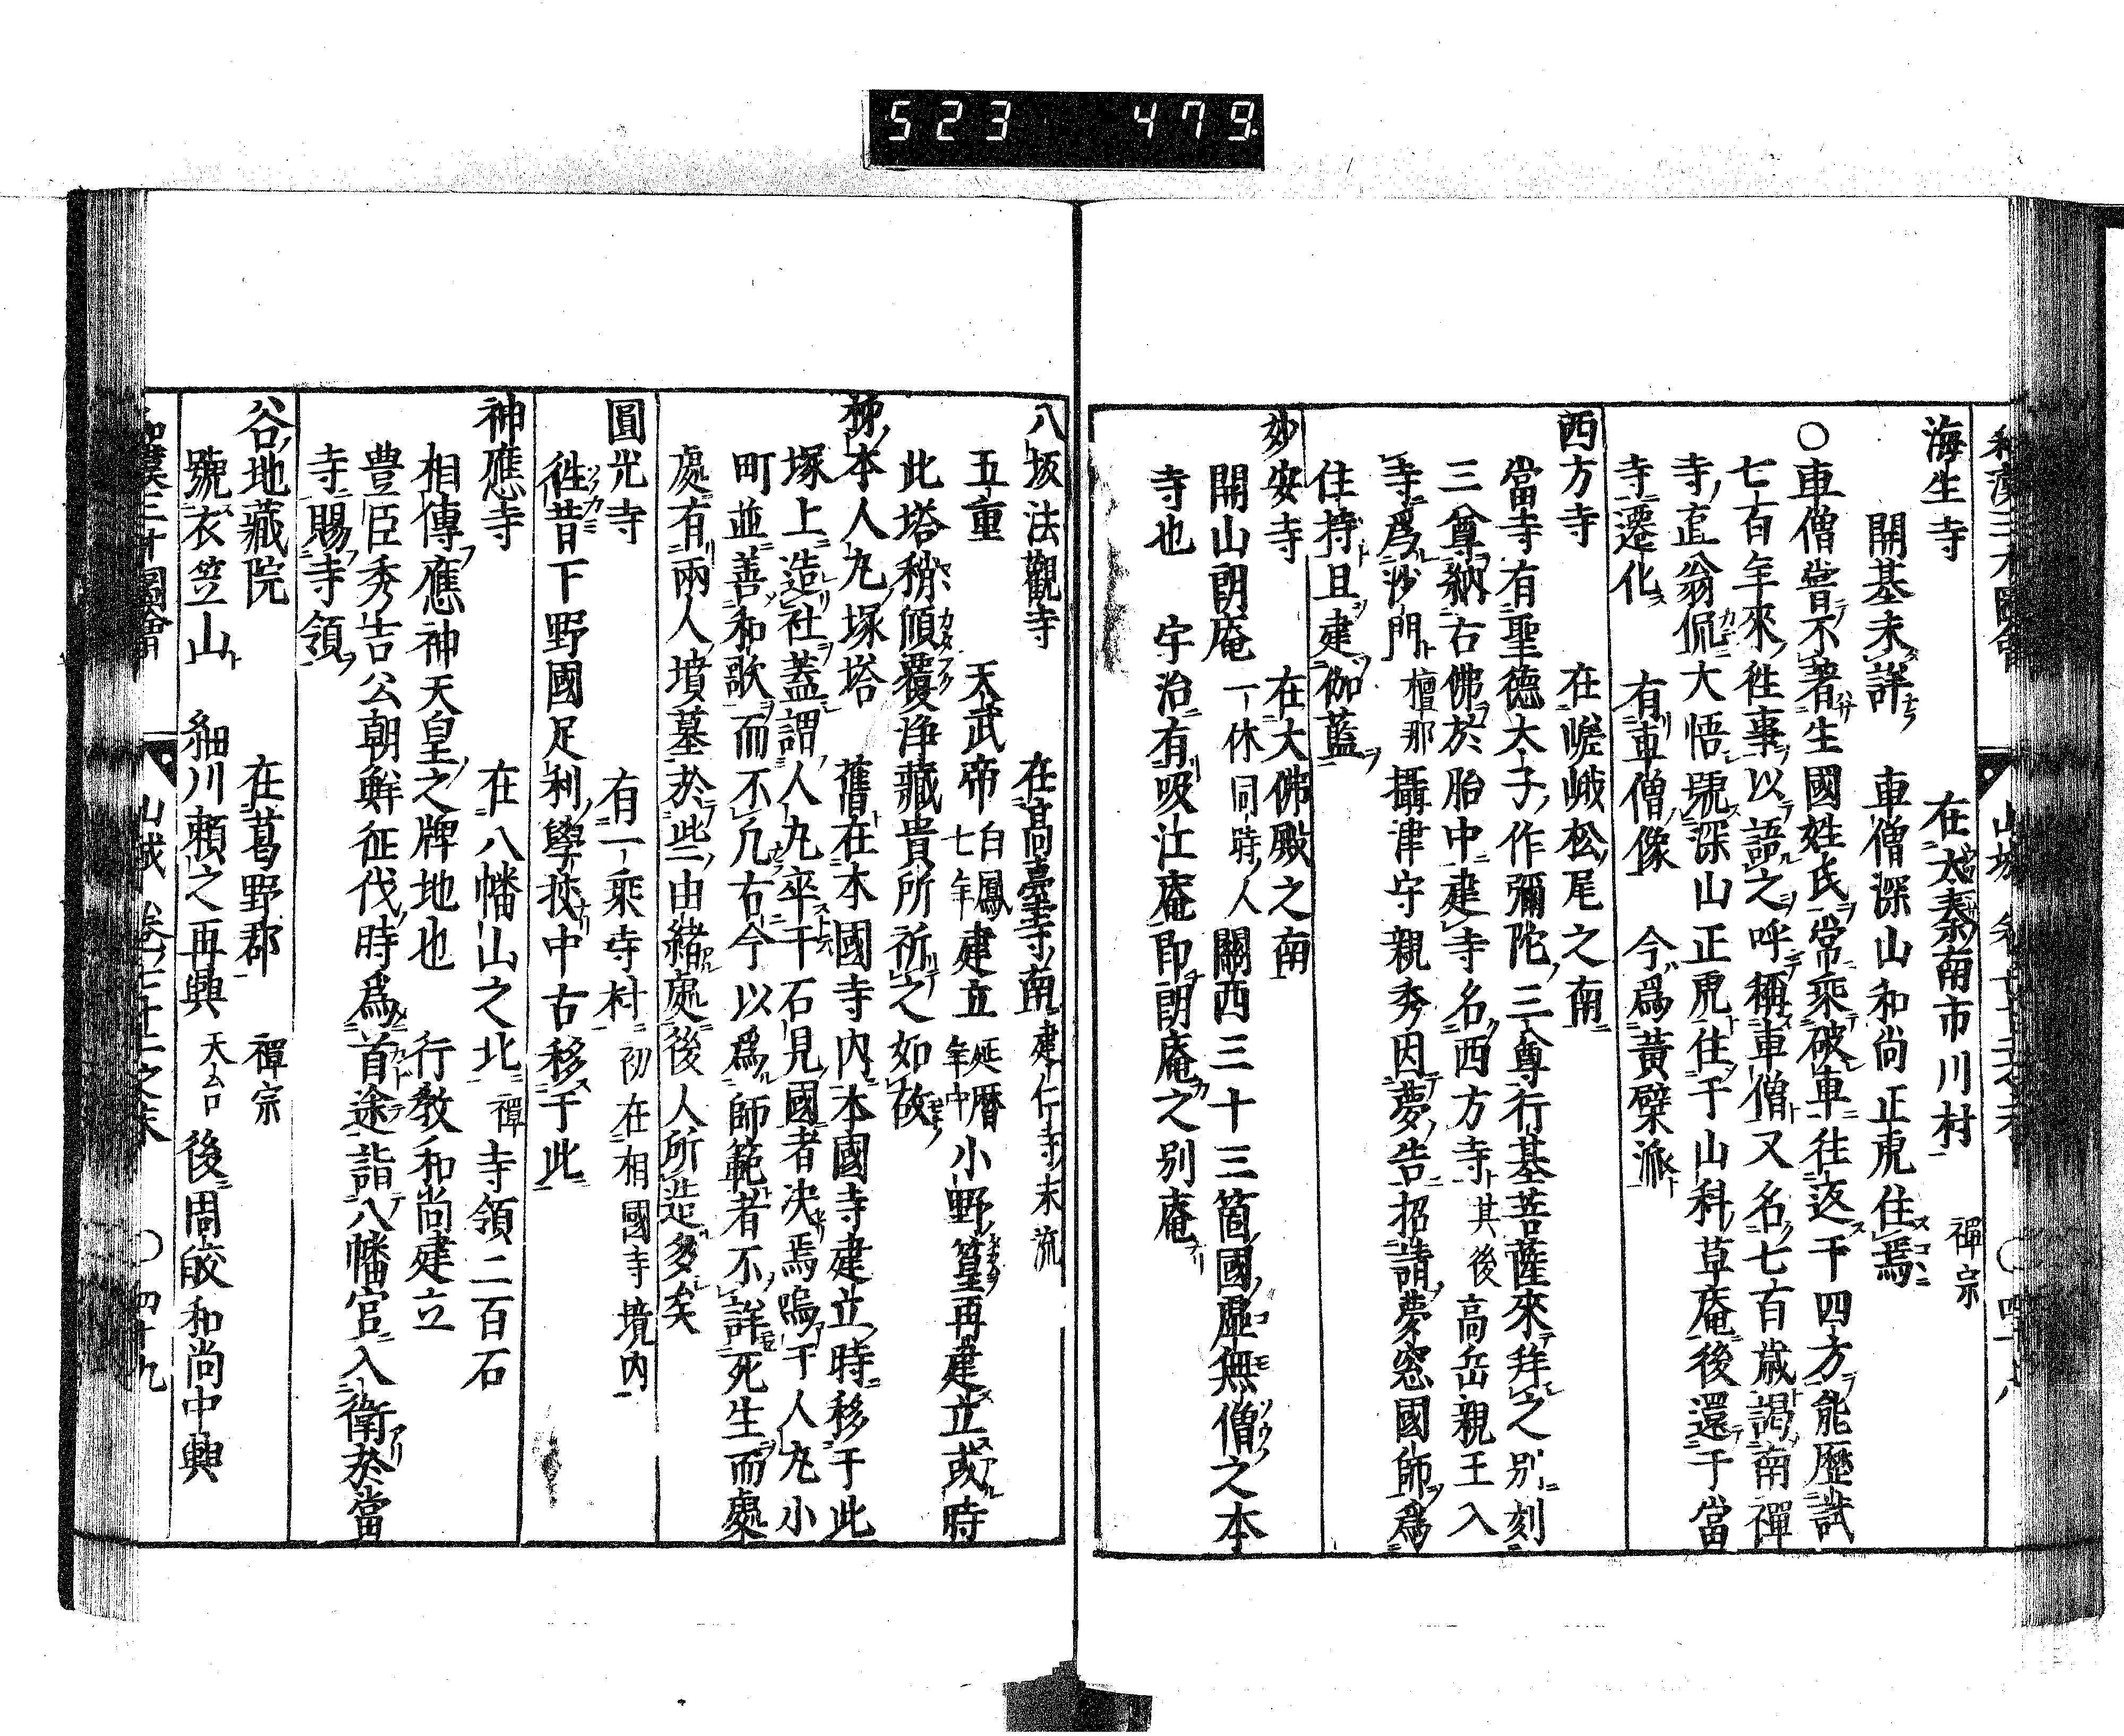 523 479
和漢三才圖會 山城 卷七十二之末 ○ 四十八
海生寺 在太秦南市川村 禪宗
開基未詳 車僧深山和尚正虎住焉
○車僧嘗不著生國姓氏常乘破車往返于四方能歷試
七百年來往事以語之呼稱車僧又名七百歲謁南禪
寺直翁侃大悟號深山正虎住于山科草庵後還于當
寺遷化 有車僧像 今爲黃檗派
西方寺 在嵯峨松尾之南
當寺有聖德太子作彌陀三尊行基菩薩來拜之別刻
三尊納右佛於胎中建寺名西方寺其後高岳親王入
寺爲沙門檀那攝津守親秀因夢告招請夢窓國師爲
住持且建伽藍
妙安寺 在大佛殿之南
開山朗庵一休同時人關西三十三箇國虛無僧之本
寺也 宇治有吸江庵即朗庵之別庵
八坂法觀寺 在高臺寺南建仁寺末流
五重 天武帝白鳳七年建立延暦年中小野篁再建立或時
此塔稍傾覆浄藏貴所祈之如故
柹本人丸塚塔 舊在本國寺内本國寺建立時移于此
塚上造社蓋謂人丸卒于石見國者決焉嗚于人丸小
町並善和歌而不凡右今以爲師範者不詳死生而處
處有兩人墳墓於些由緒處後人所造多矣
圓光寺 有一乘寺村初在相國寺境内
徃昔下野國足利學挍中古移于此
神應寺 在八幡山之北禪寺領二百石
相傳應神天皇之牌地也 行教和尚建立
豊臣秀吉公朝鮮征伐時爲首途詣八幡宮入衛於當
寺賜寺領
谷地藏院 在葛野郡 禪宗
號衣笠山 細川賴之再興天台後周皎和尚中興
和漢三才圖會 山城 卷七十二之末 ○ 四十九